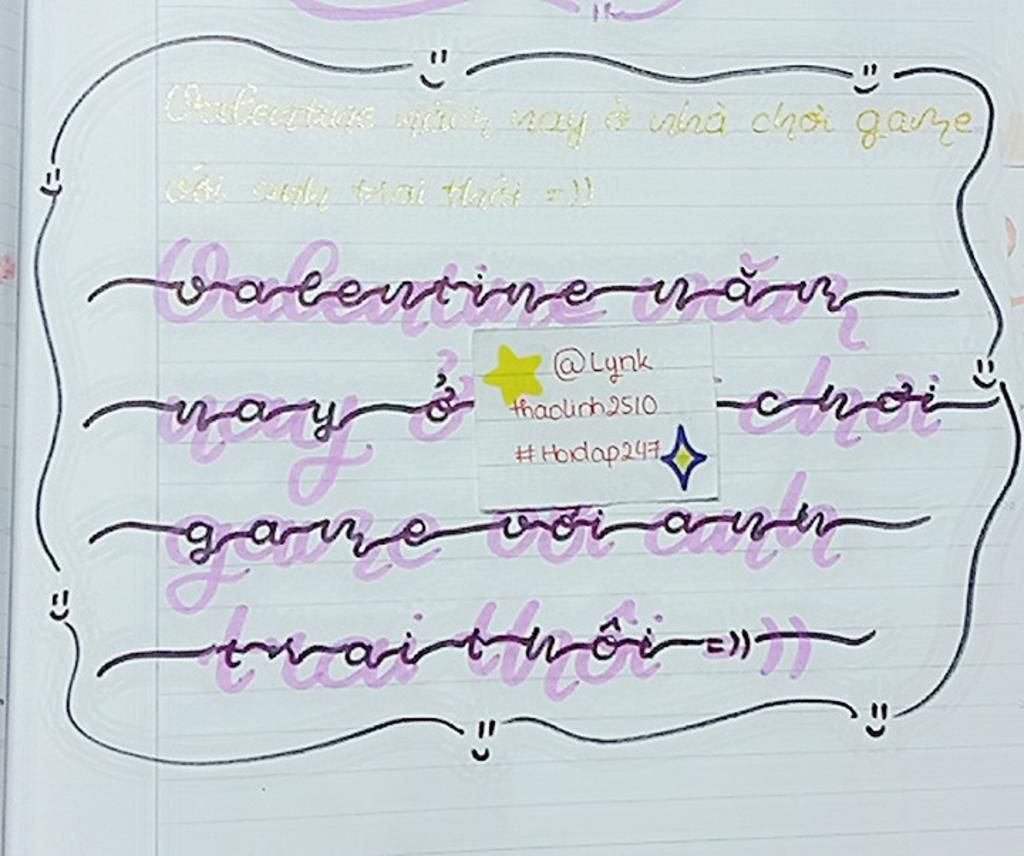 Valentine năm nay ở nhà chơi game
với anh trai thôi =))
Valentine năm
nay ở chơi
@Lynk
thaolinh2510
#Hoidap247
game với anh
trai thôi =))